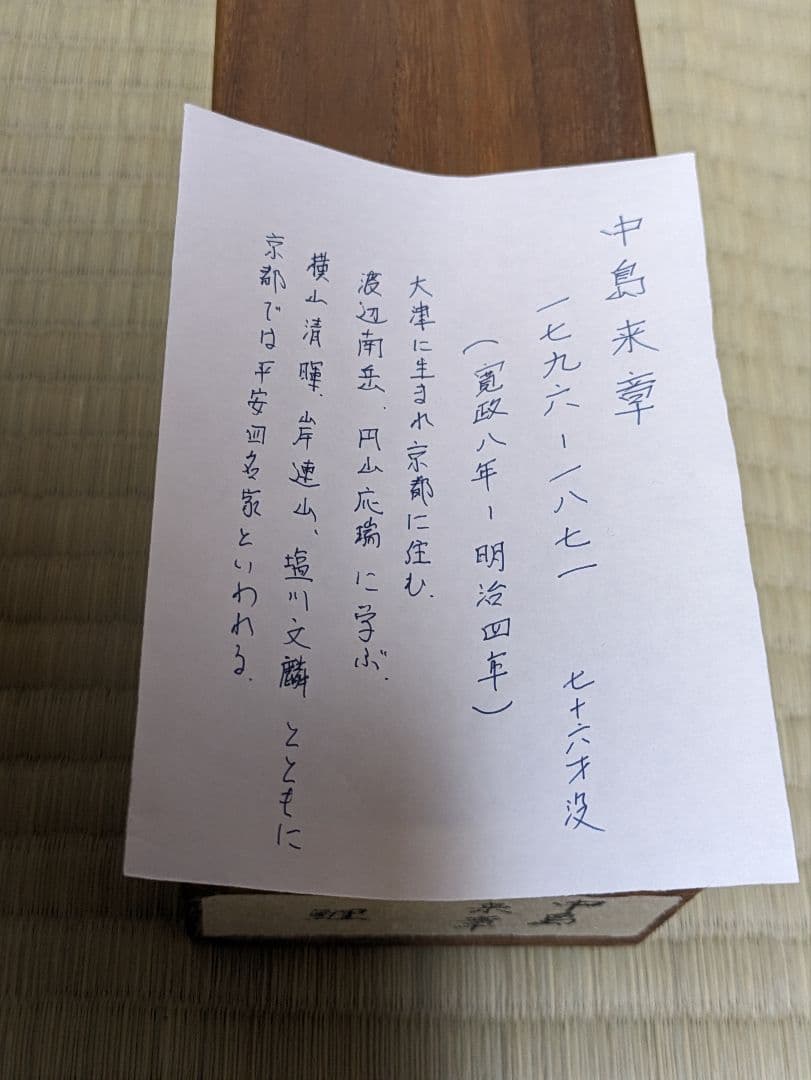 中島来章
一七九六ー一八七一 七十六才没
(寛政八年ー明治四年)
大津に生まれ京都に住む.
渡辺南岳、円山応瑞に学ぶ.
横山清暉、岸連山、塩川文麟とともに
京都では平安四名家といわれる.
中島
来章